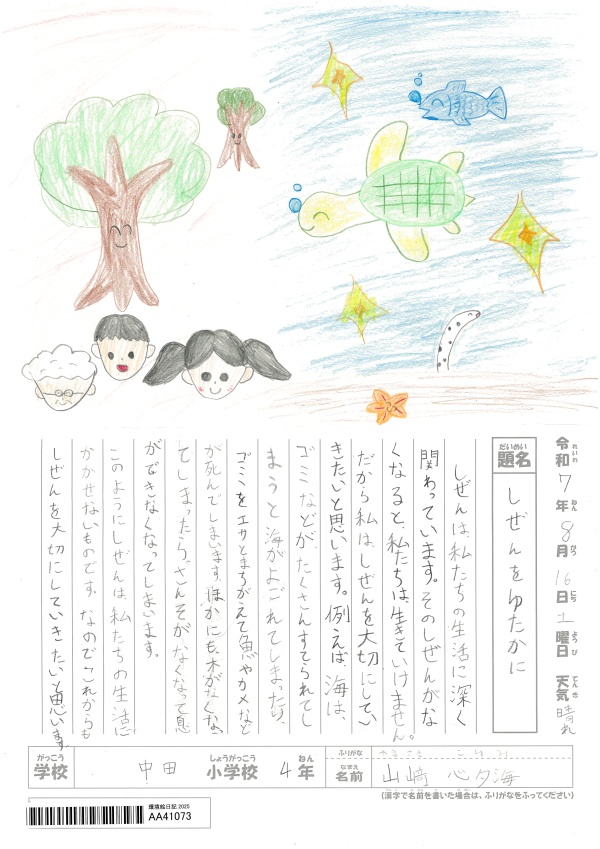 令和7年8月16日土曜日 天気 晴れ
れいわ ねん がつ にち ようび てんき
だいめい
題名 しぜんをゆたかに
しぜんは、私たちの生活に深く
関わっています。そのしぜんがな
くなると、私たちは、生きていけません。
だから私は、しぜんを大切にしてい
きたいと思います。例えば、海は、
ゴミなどが、たくさんすてられてし
まうと海がよごれてしまったり、
ゴミをエサとまちがえて魚やカメなど
が死んでしまいます。ほかにも、木がなくな
てしまったら、さんそがなくなって息
ができなくなってしまいます。
このようにしぜんは、私たちの生活に
かかせないものです。なのでこれからも
しぜんを大切にしていきたいと思います。
がっこう しょうがっこう ねん
学校 中田 小学校 4年
ふりがな
なまえ
名前 山﨑 心夕海
(漢字で名前を書いた場合は、ふりがなをふってください)
環境絵日記 2025
AA41073